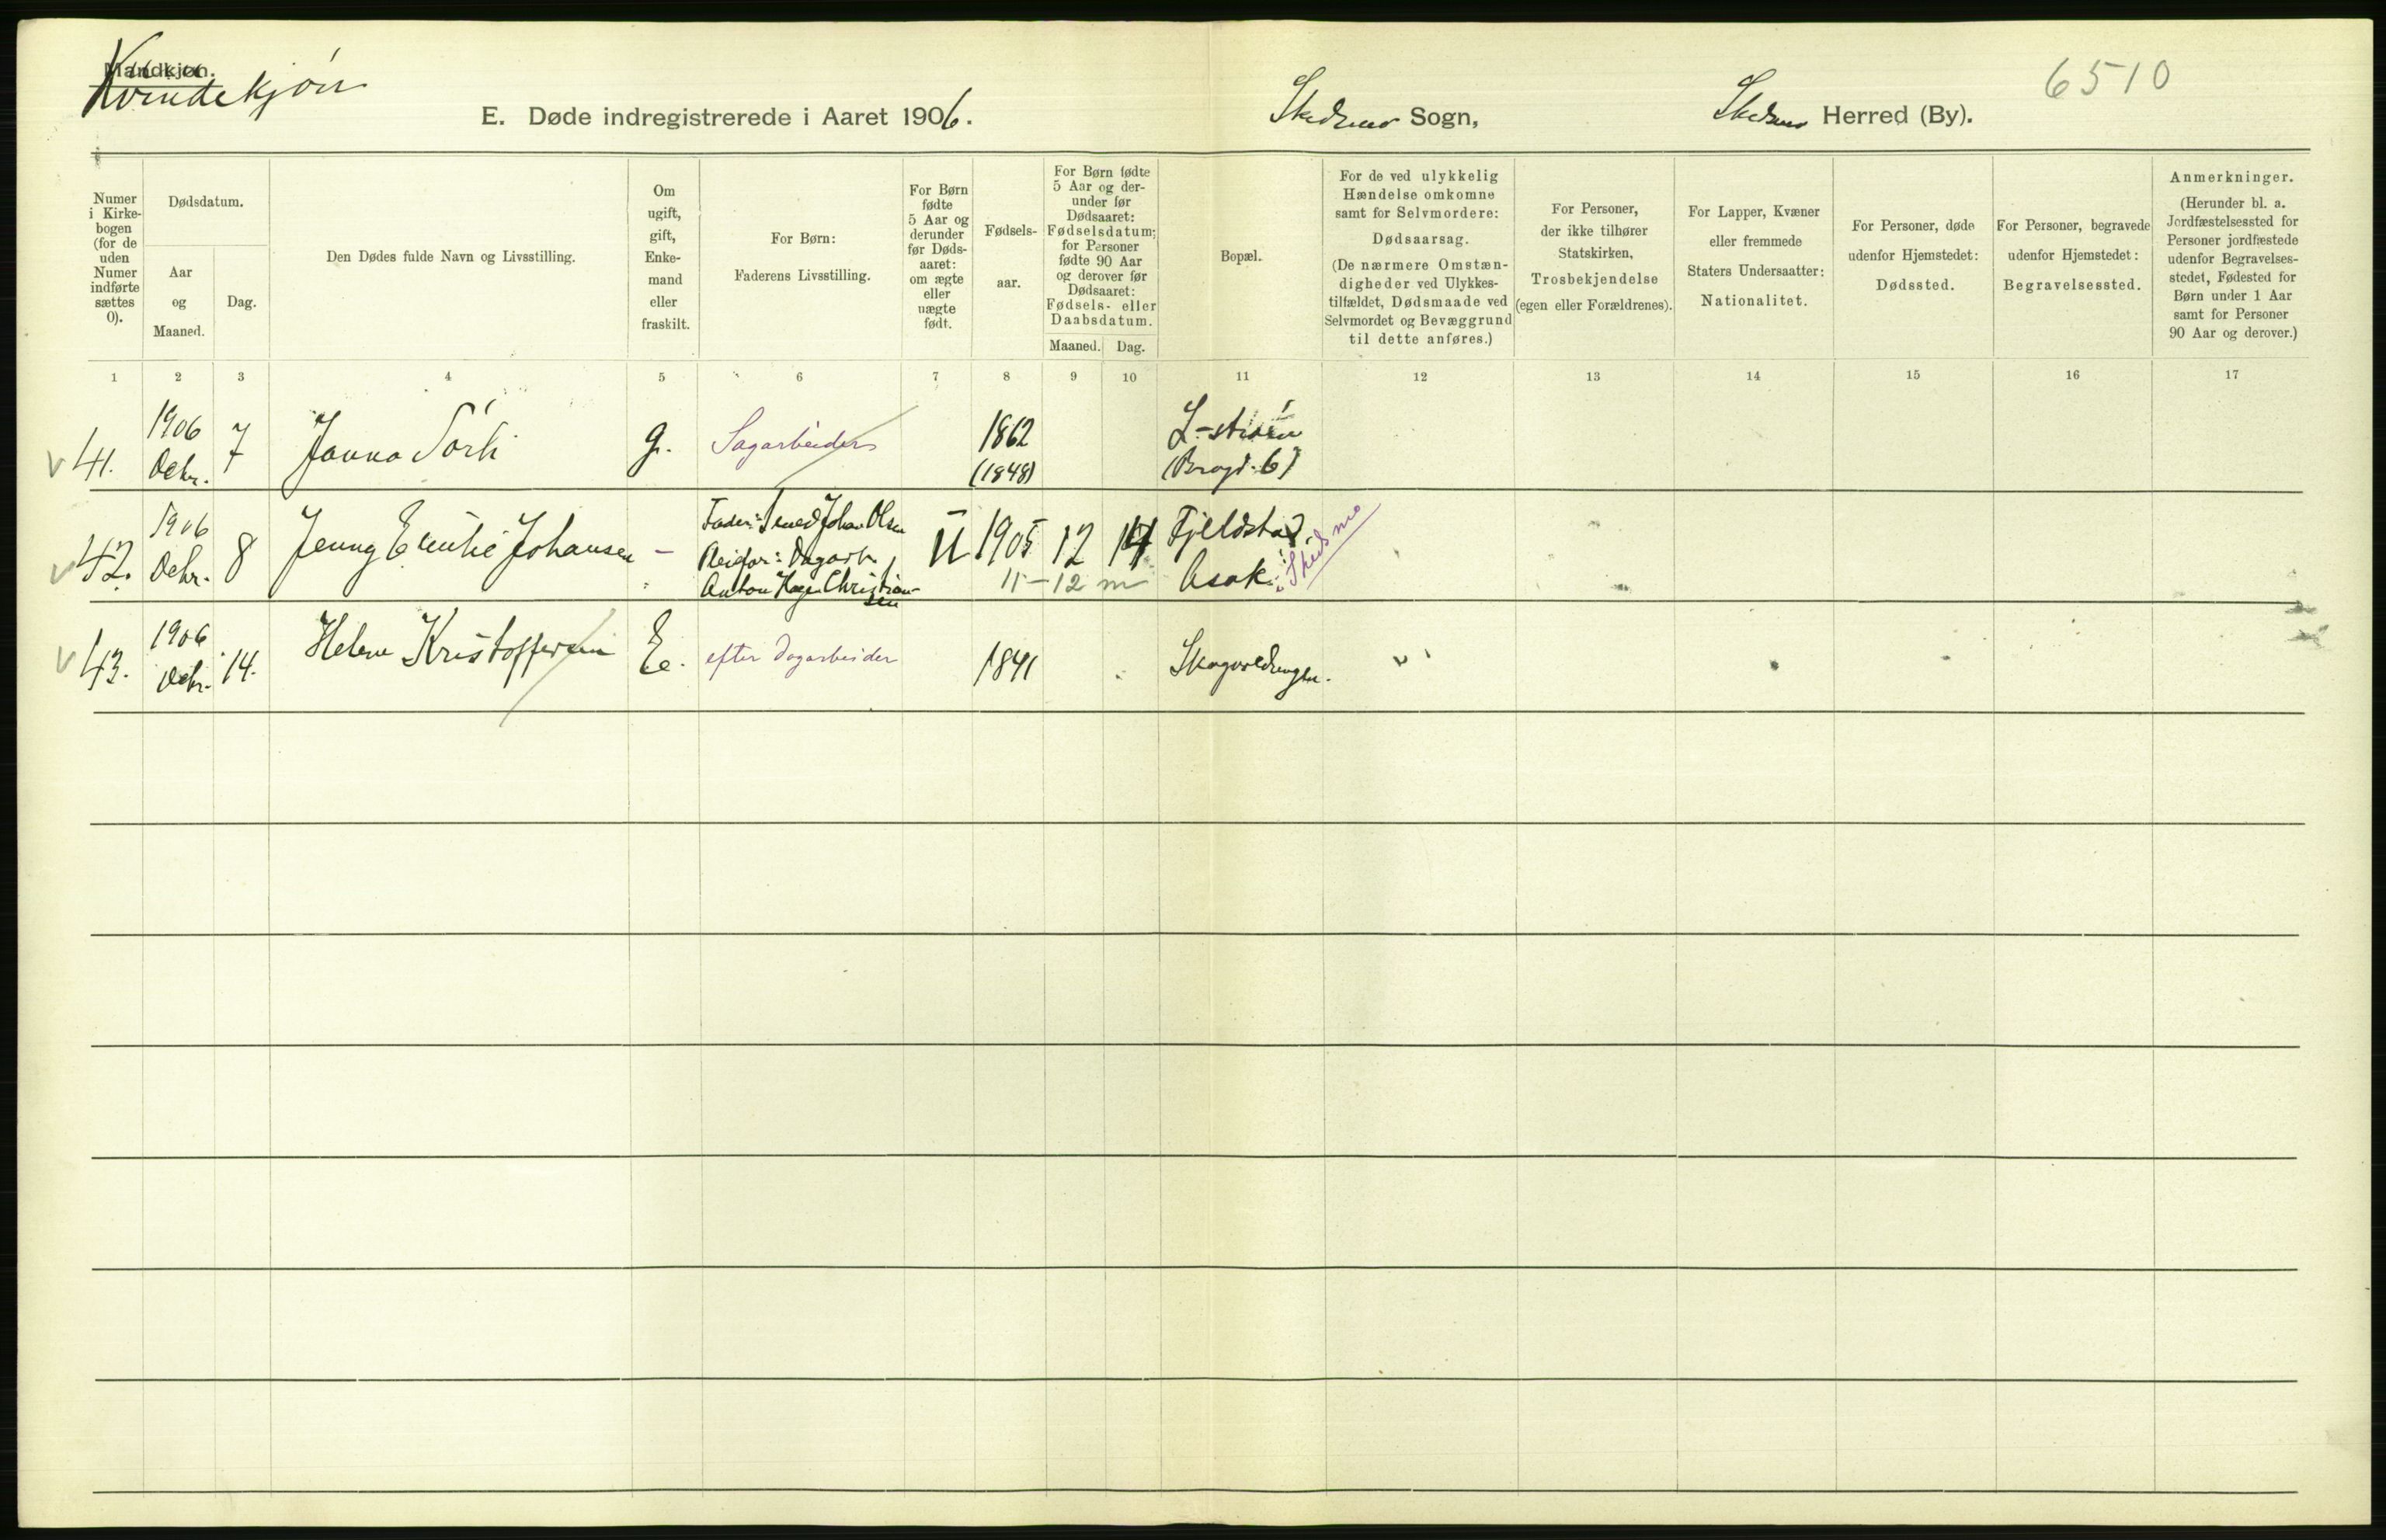 Mandkjøn.
Kvindekjøn
6510
E. Døde indregistrerede i Aaret 1906. Skedsmo Sogn, Skedsmo Herred (By).
Numer i Kirkebogen (for de uden Numer indførte sættes 0).
Dødsdatum.
Aar og Maaned.
Dag.
Den Dødes fulde Navn og Livsstilling.
Om ugift, gift, Enkemand eller fraskilt.
For Børn: Faderens Livsstilling.
For Børn fødte 5 Aar og derunder før Dødsaaret: om ægte eller uægte født.
Fødselsaar.
For Børn fødte 5 Aar og derunder før Dødsaaret: Fødselsdatum; for Personer fødte 90 Aar og derover før Dødsaaret: Fødsels- eller Daabsdatum.
Maaned. Dag.
Bopæl.
For de ved ulykkelig Hændelse omkomne samt for Selvmordere: Dødsaarsag. (De nærmere Omstændigheder ved Ulykkestilfældet, Dødsmaade ved Selvmordet og Bevæggrund til dette anføres.)
For Personer, der ikke tilhører Statskirken, Trosbekjendelse (egen eller Forældrenes).
For Lapper, Kvæner eller fremmede Staters Undersaatter: Nationalitet.
For Personer, døde udenfor Hjemstedet: Dødssted.
For Personer, begravede udenfor Hjemstedet: Begravelsessted.
Anmerkninger. (Herunder bl. a. Jordfæstelsessted for Personer jordfæstede udenfor Begravelsesstedet, Fødested for Børn under 1 Aar samt for Personer 90 Aar og derover.)
1 2 3 4 5 6 7 8 9 10 11 12 13 14 15 16 17
41. 1906 Debr. 7 Janna Sørli g. Sagarbeiders 1862 (1848) L-strøm
42. 1906 Debr. 8 Jenny Emilie Johansen - Johan Olsen Reidar: Dagarb. Anton Hagen Christiansen U 1905 12 14 Fjeldstad, Asak. Skedsmo
11-12 m
43. 1906 Debr. 14. Helene Kristoffersen E. efter Dagarbeider 1841